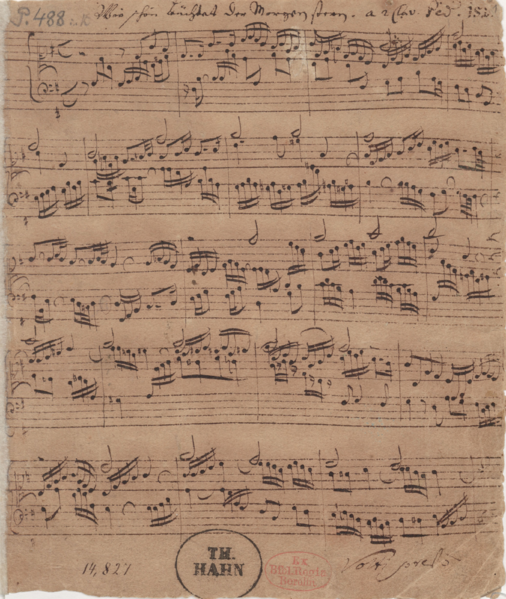 P. 488
Wie schön leüchtet der Morgenstern. a 2 Clav. Ped. JSB.
14,827
TH.
HAHN
Ex
Bibl. Regia
Berolin.
Volti presto